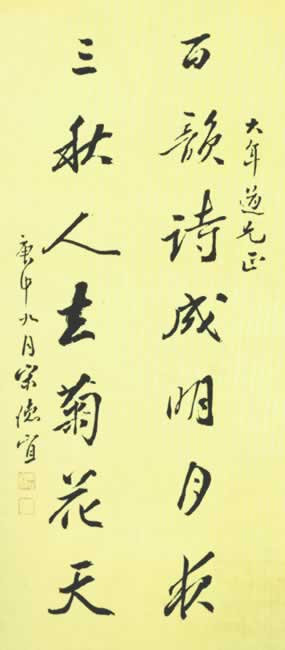 大年道兄正
百韻詩成明月夜
三秋人在菊花天
庚申九月宋德宜